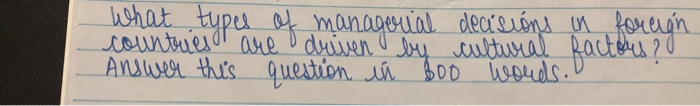 What types of managerial decisions in foreign
countries are driven by cultural factors?
Answer this question in 600 words.